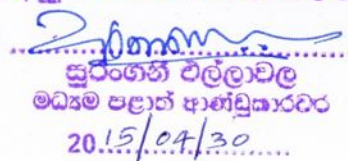 සුරංගනී එල්ලාවල
මධ්‍යම පළාත් ආණ්ඩුකාරවර
2015/04/30